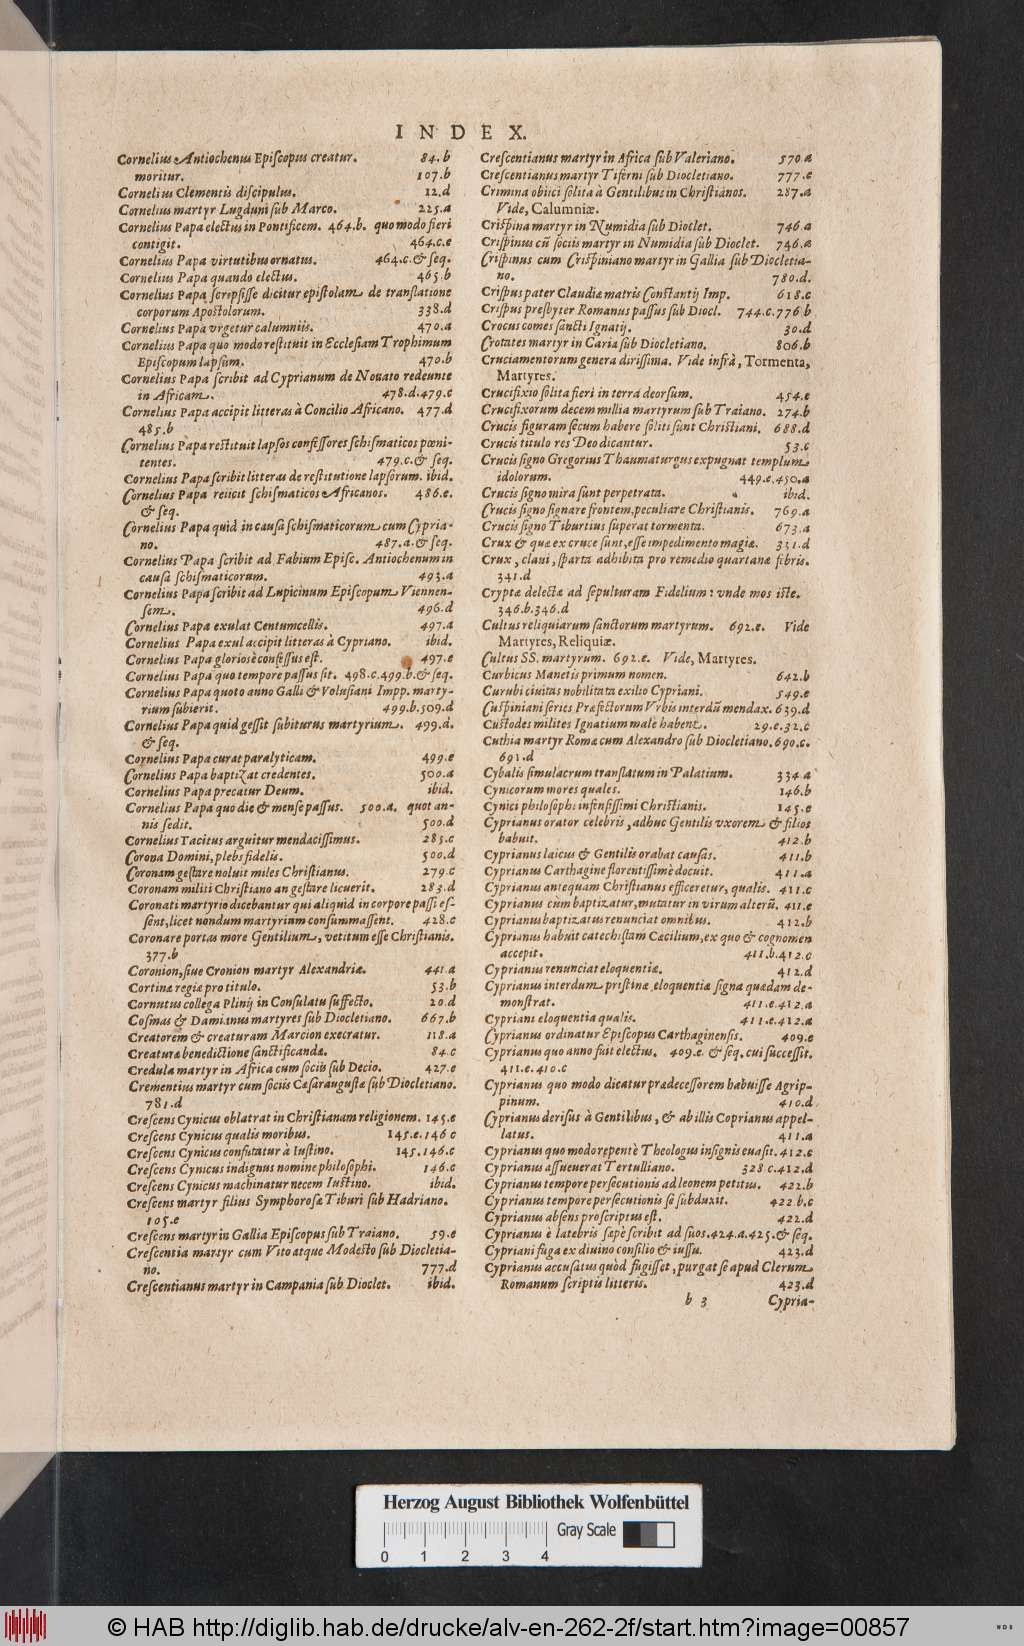 INDEX.
Cornelius Antiochenus Epiſcopus creatur. 84.b
moritur. 107.b
Cornelius Clementis diſcipulus. 12.d
Cornelius martyr Lugduni ſub Marco. 225.a
Cornelius Papa electus in Pontificem. 464.b. quomodo fieri
contigit. 464.c.e
Cornelius Papa virtutibus ornatus. 464.c.& ſeq.
Cornelius Papa quando electus. 465.b
Cornelius Papa ſcripſiſſe dicitur epiſtolam de tranſlatione
corporum Apoſtolorum. 338.d
Cornelius Papa vrgetur calumniis. 470.a
Cornelius Papa quo modo reſtituit in Eccleſiam Trophimum
Epiſcopum lapſum. 470.b
Cornelius Papa ſcribit ad Cyprianum de Nouato redeunte
in Africam. 478.d.479.c
Cornelius Papa accipit litteras à Concilio Africano. 477.d
485.b
Cornelius Papa reſtituit lapſos confeſſores ſchiſmaticos pœni-
tentes. 479.c.& ſeq.
Cornelius Papa ſcribit litteras de reſtitutione lapſorum. ibid.
Cornelius Papa reiicit ſchiſmaticos Africanos. 486.e.
& ſeq.
Cornelius Papa quid in cauſa ſchiſmaticorum cum Cypria-
no. 487.a.& ſeq.
Cornelius Papa ſcribit ad Fabium Epiſc. Antiochenum in
cauſa ſchiſmaticorum. 493.a
Cornelius Papa ſcribit ad Lupicinum Epiſcopum Viennen-
ſem. 496.d
Cornelius Papa exulat Centumcellis. 497.a
Cornelius Papa exul accipit litteras à Cypriano. ibid.
Cornelius Papa glorioſè confeſſus eſt. 497.e
Cornelius Papa quo tempore paſſus ſit. 498.c.499.b.& ſeq.
Cornelius Papa quoto anno Galli & Voluſiani Impp. marty-
rium ſubierit. 499.b.509.d
Cornelius Papa quid geſſit ſubiturus martyrium. 499.d.
& ſeq.
Cornelius Papa curat paralyticam. 499.e
Cornelius Papa baptizat credentes. 500.a
Cornelius Papa precatur Deum. ibid.
Cornelius Papa quo die & menſe paſſus. 500.a. quot an-
nis ſedit. 500.d
Cornelius Tacitus arguitur mendaciſſimus. 285.c
Corona Domini, plebs fidelis. 500.d
Coronam geſtare noluit miles Chriſtianus. 279.c
Coronam militi Chriſtiano an geſtare licuerit. 283.d
Coronati martyrio dicebantur qui aliquid in corpore paſſi eſ-
ſent, licet nondum martyrium conſummaſſent. 428.c
Coronare portas more Gentilium, vetitum eſſe Chriſtianis.
377.b
Coronion, ſiue Cronion martyr Alexandriæ. 441.a
Cortinæ regiæ pro titulo. 53.b
Cornutus collega Plinij in Conſulatu ſuffecto. 20.d
Coſmas & Damianus martyres ſub Diocletiano. 667.b
Creatorem & creaturam Marcion execratur. 118.a
Creaturæ benedictione ſanctificandæ. 84.c
Credula martyr in Africa cum ſociis ſub Decio. 427.e
Crementius martyr cum ſociis Cæſarauguſtæ ſub Diocletiano.
781.d
Creſcens Cynicus oblatrat in Chriſtianam religionem. 145.e
Creſcens Cynicus qualis moribus. 145.e.146 c
Creſcens Cynicus confutatur à Iuſtino. 145.146.c
Creſcens Cynicus indignus nomine philoſophi. 146.c
Creſcens Cynicus machinatur necem Iuſtino. ibid.
Creſcens martyr filius Symphoroſæ Tiburi ſub Hadriano.
105.e
Creſcens martyr in Gallia Epiſcopus ſub Traiano. 59.e
Creſcentia martyr cum Vito atque Modeſto ſub Diocletia-
no. 777.d
Creſcentianus martyr in Campania ſub Dioclet. ibid.
Creſcentianus martyr in Africa ſub Valeriano. 570.a
Creſcentianus martyr Tiferni ſub Diocletiano. 777.e
Crimina obiici ſolita à Gentilibus in Chriſtianos. 287.a
Vide, Calumniæ.
Criſpina martyr in Numidia ſub Dioclet. 746.a
Criſpinus cū ſociis martyr in Numidia ſub Dioclet. 746.a
Criſpinus cum Criſpiniano martyr in Gallia ſub Diocletia-
no. 780.d.
Criſpus pater Claudiæ matris Conſtantij Imp. 618.c
Criſpus presbyter Romanus paſſus ſub Diocl. 744.c.776.b
Crocus comes ſancti Ignatij. 30.d
Crotates martyr in Caria ſub Diocletiano. 806.b
Cruciamentorum genera diriſſima. Vide infrà, Tormenta,
Martyres.
Crucifixio ſolita fieri in terra deorſum. 454.e
Crucifixorum decem millia martyrum ſub Traiano. 274.b
Crucis figuram ſecum habere ſoliti ſunt Chriſtiani. 688.d
Crucis titulo res Deo dicantur. 53.c
Crucis ſigno Gregorius Thaumaturgus expugnat templum
idolorum. 449.e.450.a
Crucis ſigno mira ſunt perpetrata. ibid.
Crucis ſigno ſignare frontem, peculiare Chriſtianis. 769.a
Crucis ſigno Tiburtius ſuperat tormenta. 673.a
Crux & quæ ex cruce ſunt, eſſe impedimento magiæ. 331.d
Crux, claui, ſparta adhibita pro remedio quartanæ febris.
341.d
Cryptæ delectæ ad ſepulturam Fidelium: vnde mos iſte.
346.b.346.d
Cultus reliquiarum ſanctorum martyrum. 692.e. Vide
Martyres, Reliquiæ.
Cultus SS. martyrum. 692.e. Vide, Martyres.
Curbicus Manetis primum nomen. 642.b
Curubi ciuitas nobilitata exilio Cypriani. 549.e
Cuſpiniani ſeries Præfectorum Vrbis interdū mendax. 639.d
Cuſtodes milites Ignatium male habent. 29.e.32.c
Cuthia martyr Romæ cum Alexandro ſub Diocletiano. 690.c.
691.d
Cybalis ſimulacrum tranſlatum in Palatium. 334.a
Cynicorum mores quales. 146.b
Cynici philoſophi infenſiſſimi Chriſtianis. 145.e
Cyprianus orator celebris, adhuc Gentilis vxorem & filios
habuit. 412.b
Cyprianus laicus & Gentilis orabat cauſas. 411.b
Cyprianus Carthagine florentiſſimè docuit. 411.a
Cyprianus antequam Chriſtianus efficeretur, qualis. 411.c
Cyprianus cùm baptizatur, mutatur in virum alterū. 411.e
Cyprianus baptizatus renunciat omnibus. 412.b
Cyprianus habuit catechiſtam Cæcilium, ex quo & cognomen
accepit. 411.b.412.c
Cyprianus renunciat eloquentiæ. 412.d
Cyprianus interdum priſtinæ eloquentiæ ſigna quædam de-
monſtrat. 411.e.412.a
Cypriani eloquentia qualis. 411.e.412.a
Cyprianus ordinatur Epiſcopus Carthaginenſis. 409.e
Cyprianus quo anno fuit electus. 409.e. & ſeq. cui ſucceſſit.
411.e.410.c
Cyprianus quo modo dicatur prædeceſſorem habuiſſe Agrip-
pinum. 410.d
Cyprianus deriſus à Gentilibus, & ab illis Coprianus appel-
latus. 411.a
Cyprianus quo modo repentè Theologus inſignis euaſit. 412.c
Cyprianus aſſueuerat Tertulliano. 328 c.412.d
Cyprianus tempore perſecutionis ad leonem petitus. 422.b
Cyprianus tempore perſecutionis ſe ſubduxit. 422.b.c
Cyprianus abſens proſcriptus eſt. 422.d
Cyprianus è latebris ſæpè ſcribit ad ſuos. 424.a.425.& ſeq.
Cypriani fuga ex diuino conſilio & iuſſu. 423.d
Cyprianus accuſatus quòd fugiſſet, purgat ſe apud Clerum
Romanum ſcriptis litteris. 423.d
b 3 Cypria-
Herzog August Bibliothek Wolfenbüttel
Gray Scale
0 1 2 3 4
© HAB http://diglib.hab.de/drucke/alv-en-262-2f/start.htm?image=00857